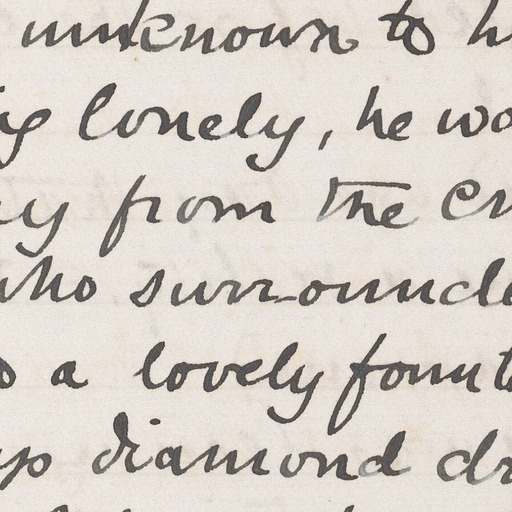 unknown to h
lonely, he wa
y from the cr
who surrounde
a lovely fount
up diamond dr